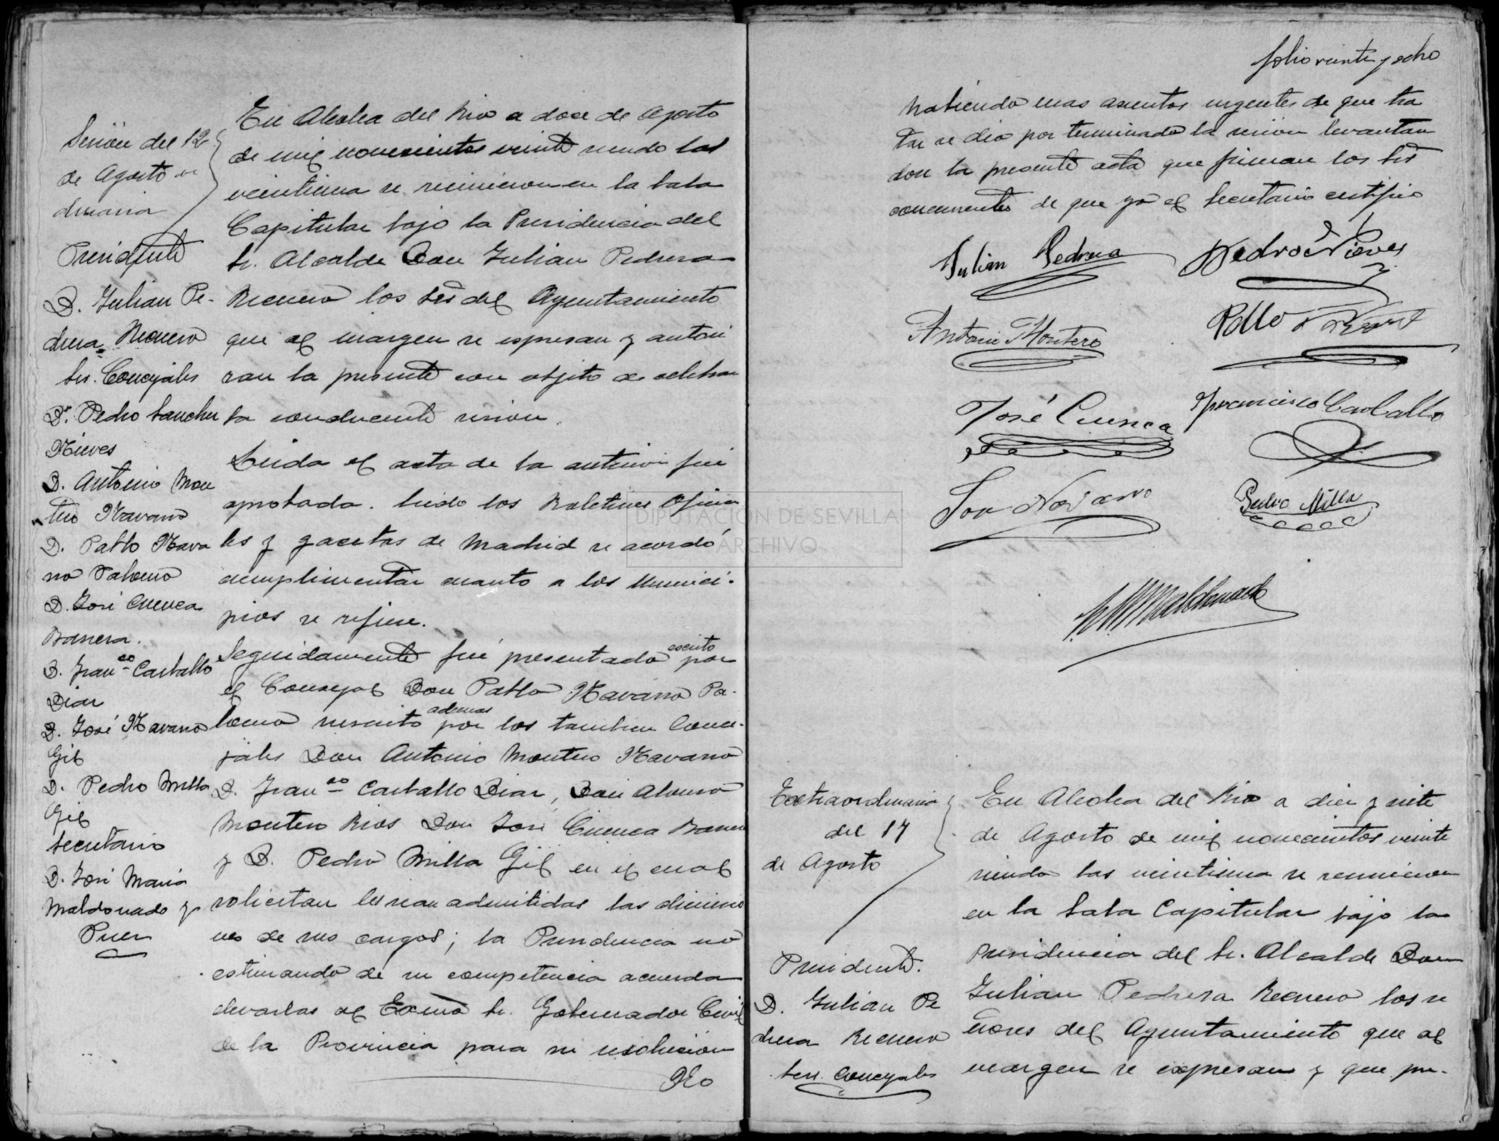 Sesión del 12
de Agosto or
dinaria
Presidente
D. Julian Pe-
drera Requero
Sres. Concejales
Dn. Pedro Sanchez
Nieves
D. Antonio Mon
tero Navarro
D. Pablo Nava
rro Palomo
D. José Cuenca
Barrera.
D. Franco Carballo
Diaz
D. José Navarro
Gil
D. Pedro Milla
Gil
Secretario
D. José Maria
Maldonado y
Puer
En Alcolea del Rio a doce de Agosto
de mil novecientos veinte siendo las
veintiuna se reunieron en la Sala
Capitular bajo la Presidencia del
Sr. Alcalde Don Julian Pedrera
Requero los Sres del Ayuntamiento
que al margen se espresan y autori
zan la presente con objeto de celebrar
la conducente sesion.
Leida el acta de la anterior fué
aprobada. Leido los Boletines Oficia
les y gacetas de Madrid se acordó
cumplimentar cuanto a los Munici-
pios se refiere.
Seguidamente fué presentado escrito por
el Concejal Don Pablo Navarro Pa-
lomo suscrito ademas por los tambien Conce-
jales Don Antonio Montero Navarro
D. Franco Carballo Diaz, Don Alonso
Montero Rios Don José Cuenca Barrera
y D. Pedro Milla Gil en el cual
solicitan les sean admitidas las dimisio
nes de sus cargos; la Presidencia no
estimando de su competencia acuerda
elevarlas al Excmo Sr. Gobernador Civil
de la Provincia para su resolucion
No
folio veinte y ocho
habiendo mas asuntos urgentes de que tra
tar se dio por terminada la sesion levantan
dose la presente acta que firman los Sres
concurrentes de que yo el Secretario certifico
Julian Pedrera
Pedro S. Nieves
Antonio Montero
Pablo Navarro
José Cuenca
Francisco Carballo
Jose Navarro
Pedro Milla
Maldonado
DIPUTACIÓN DE SEVILLA
ARCHIVO
Extraordinaria
del 17
de Agosto
Presidente.
D. Julian Pe
drera Requero
Sres. Concejales
En Alcolea del Rio a diez y siete
de Agosto de mil novecientos veinte
siendo las veintiuna se reunieron
en la Sala Capitular bajo la
presidencia del Sr. Alcalde Don
Julian Pedrera Requero los se
ñores del Ayuntamiento que al
margen se expresan y que pre-